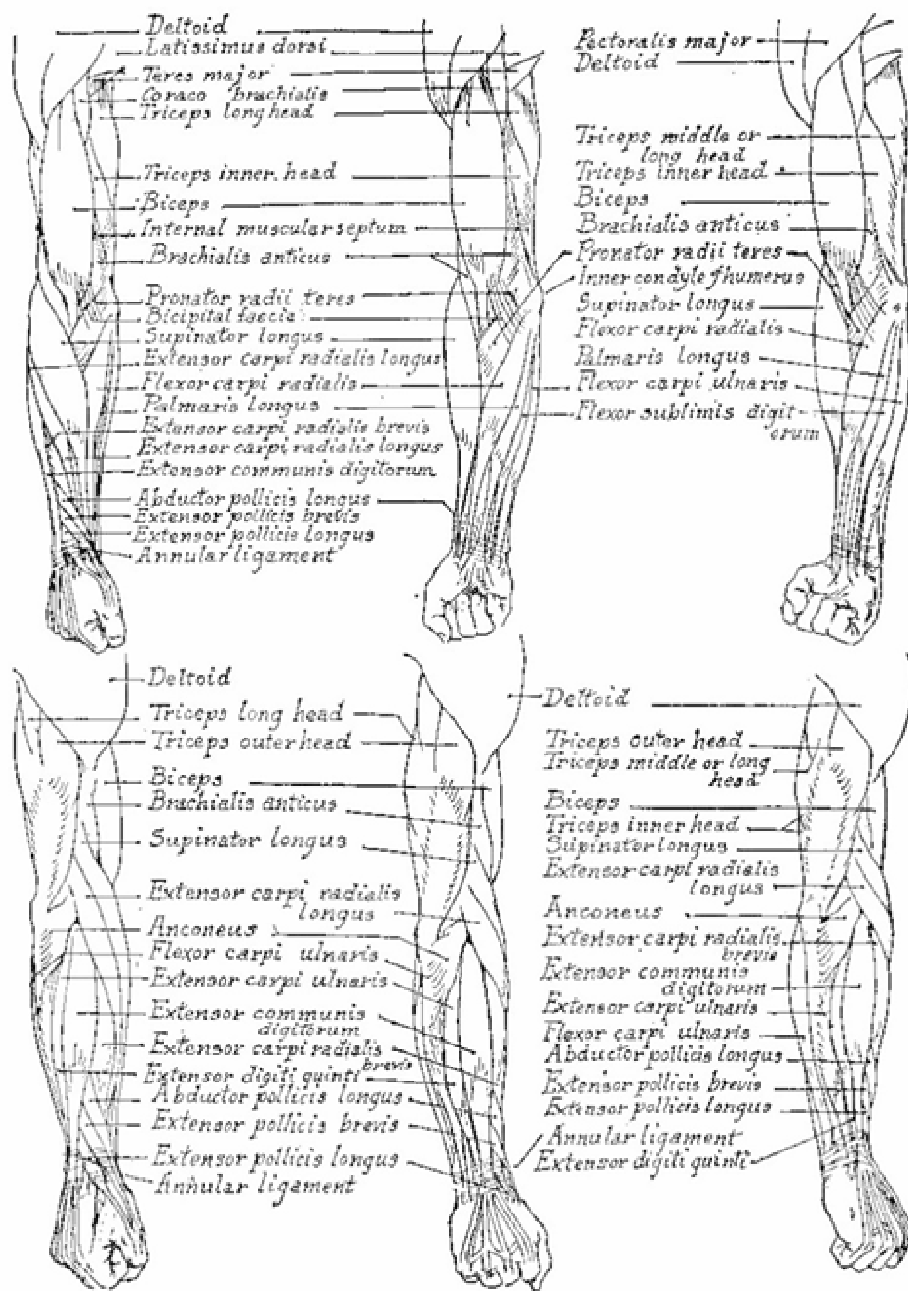 Deltoid
Latissimus dorsi
Teres major
Coraco brachialis
Triceps long head
Triceps inner head
Biceps
Internal muscular septum
Brachialis anticus
Pronator radii teres
Bicipital fascia
Supinator longus
Extensor carpi radialis longus
Flexor carpi radialis
Palmaris longus
Extensor carpi radialis brevis
Extensor carpi radialis longus
Extensor communis digitorum
Abductor pollicis longus
Extensor pollicis brevis
Extensor pollicis longus
Annular ligament
Pectoralis major
Deltoid
Triceps middle or
long head
Triceps inner head
Biceps
Brachialis anticus
Pronator radii teres
Inner condyle of humerus
Supinator longus
Flexor carpi radialis
Palmaris longus
Flexor carpi ulnaris
Flexor sublimis digit
orum
Deltoid
Triceps long head
Triceps outer head
Biceps
Brachialis anticus
Supinator longus
Extensor carpi radialis
longus
Anconeus
Flexor carpi ulnaris
Extensor carpi ulnaris
Extensor communis
digitorum
Extensor carpi radialis
brevis
Extensor digiti quinti
Abductor pollicis longus
Extensor pollicis brevis
Extensor pollicis longus
Annular ligament
Deltoid
Triceps outer head
Triceps middle or long
head
Biceps
Triceps inner head
Supinator longus
Extensor carpi radialis
longus
Anconeus
Extensor carpi radialis
brevis
Extensor communis
digitorum
Extensor carpi ulnaris
Flexor carpi ulnaris
Abductor pollicis longus
Extensor pollicis brevis
Extensor pollicis longus
Annular ligament
Extensor digiti quinti